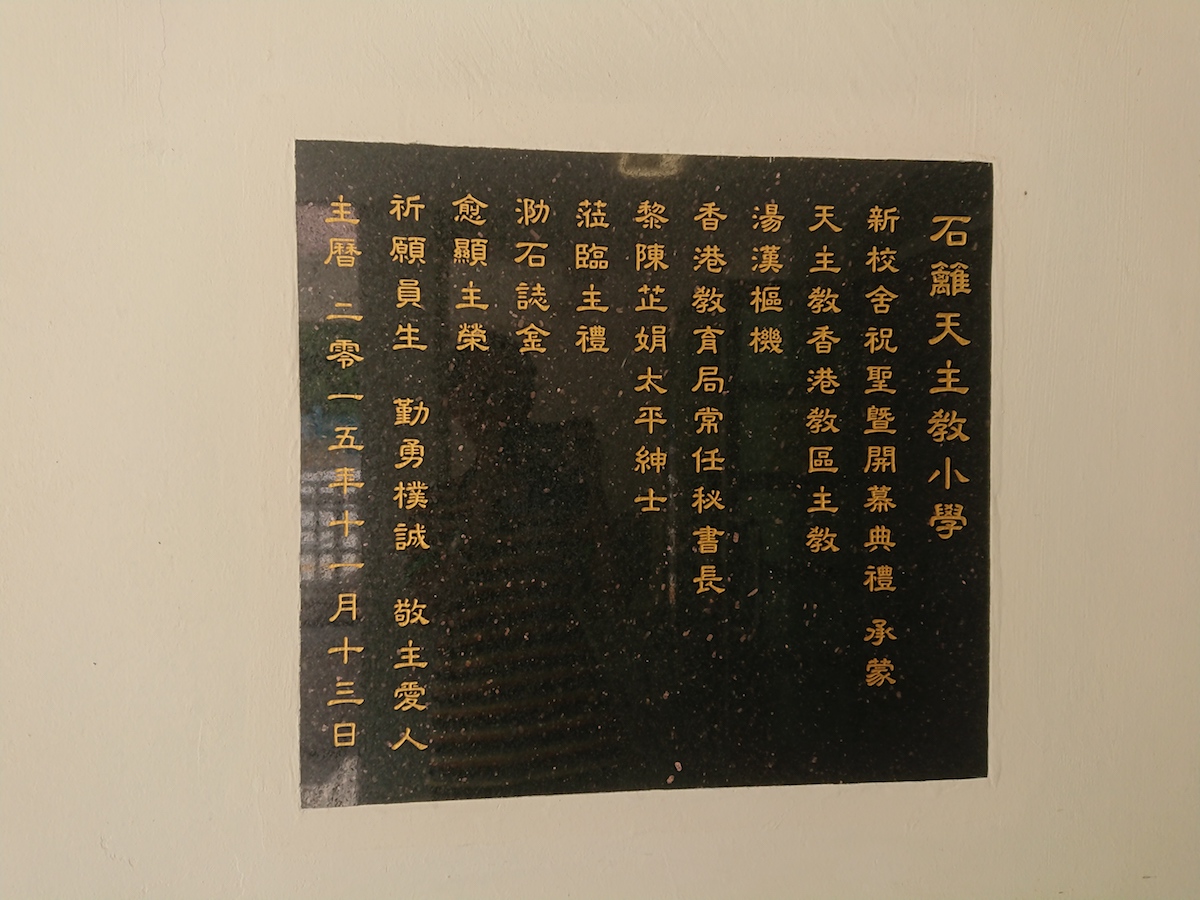 石籬天主教小學
新校舍祝聖暨開幕典禮 承蒙
天主教香港教區主教
湯漢樞機
香港教育局常任秘書長
黎陳芷娟太平紳士
蒞臨主禮
泐石誌金
愈顯主榮
祈願員生 勤勇樸誠 敬主愛人
主曆 二零一五年十一月十三日